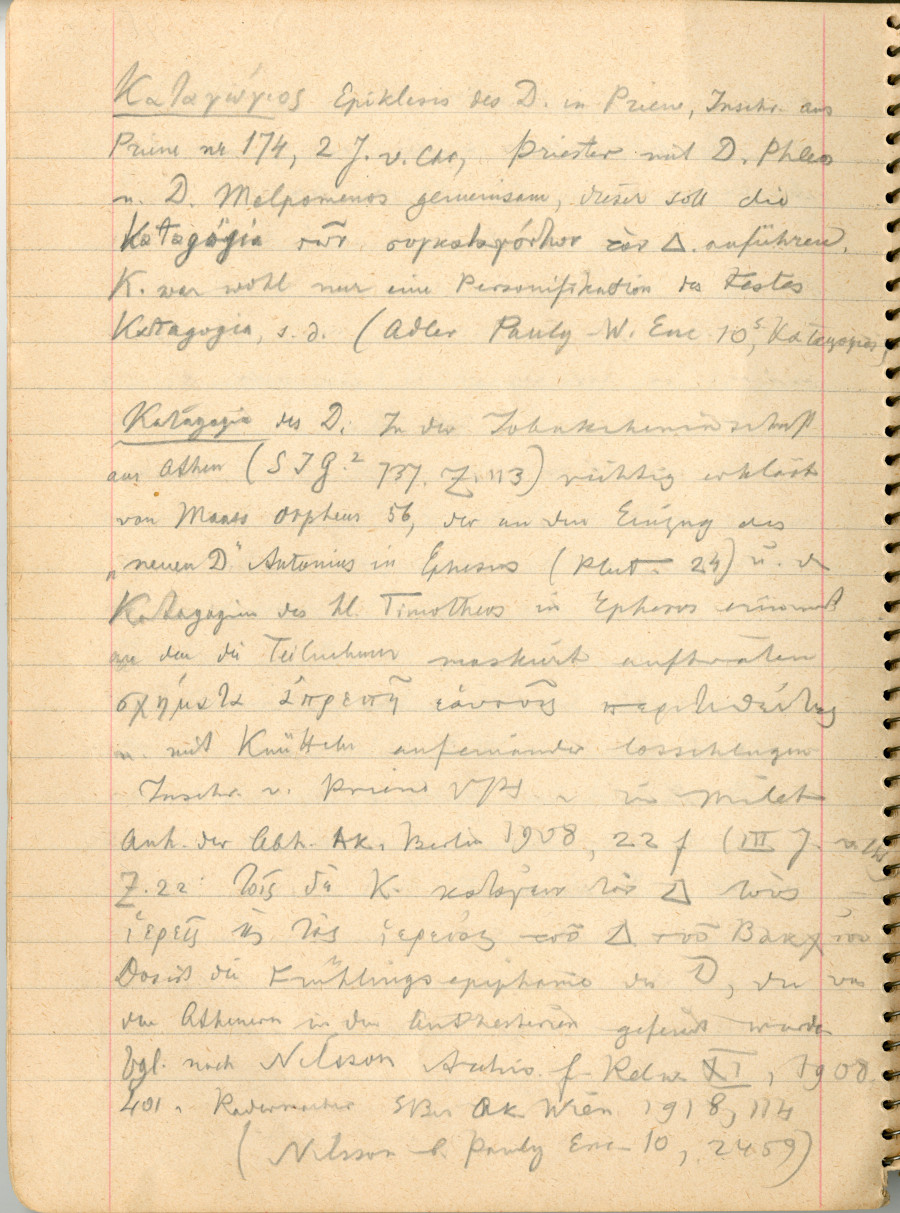 Καταγώγιος Epiklesis des D. in Priene, Inschr. aus
Priene nr 174, 2 J. v. Chr, Priester mit D. Phleos
u. D. Melpomenos gemeinsam, dieser soll die
Katagogia τῶν συγκαταγόντων τὸν Δ. anführen.
K. war wohl nur eine Personifikation des Festes
Katagogia, s. d. (Adler Pauly-W. Enc 10, Καταγώγιος)
Katagogia des D. In der Iobakcheninschrift
aus Athen (SIG.² 737. Z. 113) richtig erklärt
von Maass Orpheus 56, der an den Einzug des
„neuen D“ Antonius in Ephesus (Plut. 24) u. d
Katagogien des hl. Timotheos in Ephesos erinnert
an den die Teilnehmer maskiert auftraten
σχήματα ἀπρεπῆ ἑαυτοῖς περιτιθέντες
u. mit Knütteln aufeinander losschlugen
Inschr. v. Priene 174 u in Milet
Anh. der Abh. Ak. Berlin 1908, 22 f (III J. v. Chr)
Z. 22 τοῖς δὲ Κ. κατάγειν τὸν Δ τοὺς
ἱερεῖς κ τὰς ἱερείας τοῦ Δ τοῦ Βακχίου
Das ist die Frühlingsepiphanie des D, die von
den Athenern in den Anthesterien gefeiert wurde
Vgl. noch Nilsson Archiv. f. Relw XI, 1908
401, Radermacher SBer Ak Wien 1918, 114
(Nilsson b. Pauly Enc 10, 2459)